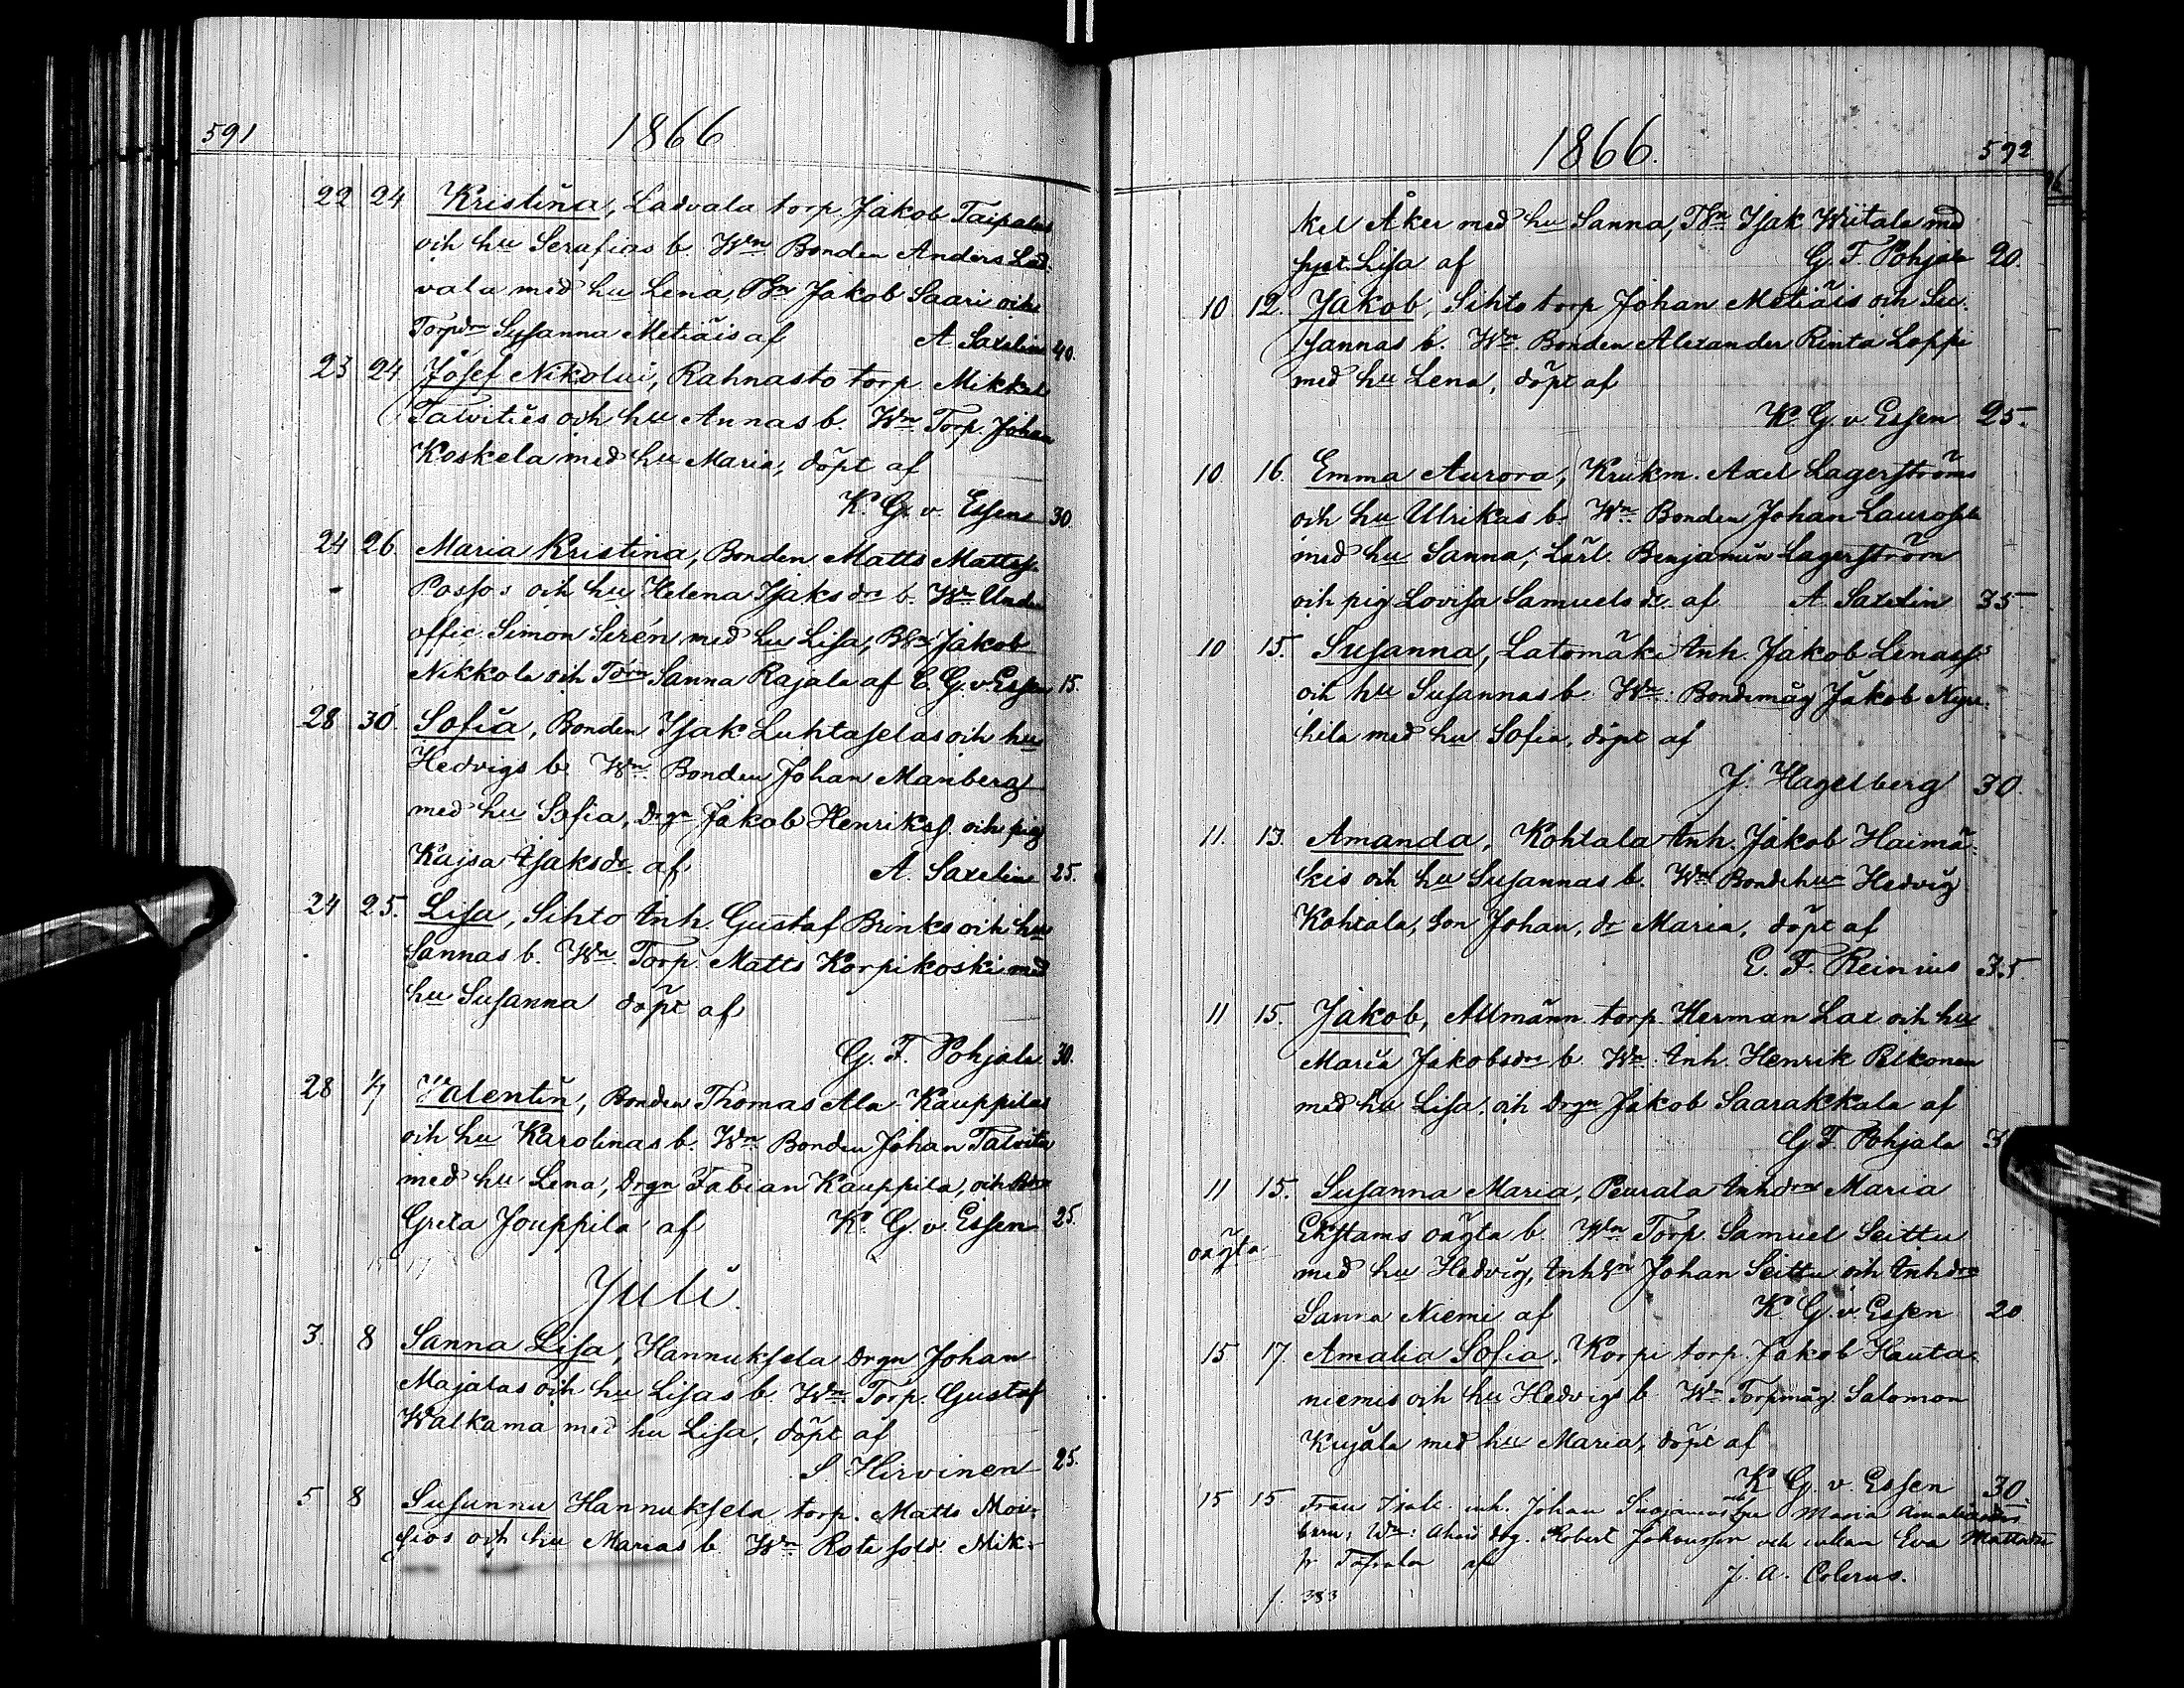 591
1866
22 24 Kristina, Ladvala torp. Jakob Taipalus
och hu Serafias b. Wn Bonden Anders Lad-
vala med hu Lena, Jakob Saari och
Susanna Metiäis af A. Saxelin 40.
23 24 Josef Nikolai, Rahnasto torp. Mikkel
Talvities och hu Annas b. Wn Torp. Johan
Koskela med hu Maria, döpt af
K. G. v. Essen 30.
24 26 Maria Kristina, Bonden Matts Mattss.
Passos och hu Helena Isaksdr b. Wn Under
offic. Simon Sirén med hu Lisa, Jakob
Nikkola och Sanna Rajala af C. G. v. Essen 15.
28 30. Sofia, Bonden Isak Luhtaselas och hu
Hedvigs b. Wn Bonden Johan Manberg
med hu Sofia, Drgn Jakob Henrikss. och pig
Kajsa Isaksdr. af A. Saxelin 25.
24 25. Lisa, Sihto Inh. Gustaf Brinks och hu
Sannas b. Wn Torp. Matts Korpikoski med
hu Susanna döpt af
G. F. Pohjala 30.
28 1/7 Valentin, Bonden Thomas Ala-Kauppilas
och hu Karolinas b. Wn Bonden Johan Talvitie
med hu Lena, Drgn Fabian Kauppila, och
Greta Jouppila af K. G. v. Essen 25.
Juli.
3. 8 Sanna Lisa, Hannuksela Drgn Johan
Majalas och hu Lisas b. Wn Torp. Gustaf
Walkama med hu Lisa, döpt af
S. Hirvinen 25.
5 8 Susanna Hannuksela torp. Matts Moi-
sios och hu Marias b. Wn Rote sold. Mik-
1866.
592
kel Åker med hu Sanna, Isak Wiitala med
Lisa af G. F. Pohjala 20
10 12. Jakob, Sihto torp Johan Metiäis och Su-
sannas b. Wn Bonden Alexander Rinta Loppi
med hu Lena, döpt af
K. G. v. Essen 25.
10 16. Emma Aurora, Krukm. Axel Lagerströms
och hu Ulrikas b. Wn Bonden Johan Laurosela
med hu Sanna, Lärl. Benjamin Lagerström
och pig Lovisa Samuelsdr. af A. Saxelin 35
10 15. Susanna, Latomäki Inh. Jakob Lenass
och hu Susannas b. Wn: Bondemåg Jakob Nyy-
hila med hu Sofia, döpt af
J. Hagelberg 30.
11. 13. Amanda, Kohtala Inh. Jakob Haimä-
kis och hu Susannas b. Wn Bondehu Hedvig
Kohtala, son Johan, dr Maria, döpt af
E. F. Reinius 35
11 15. Jakob, Allmänn. torp. Herman Lax och hu
Maria Jakobsdrs b. Wn: Inh. Henrik Pelkonen
med hu Lisa, och Drgn Jakob Saarakkala af
G. F. Pohjala
11 15. Susanna Maria, Peurala Inhdrn Maria
Ekstams oägta b. Wn Torp. Samuel Seittu
oägta
med hu Hedvig, Johan Seittu och Inhdrn
Sanna Niemi af K. G. v. Essen 20
15 17. Amalia Sofia, Korpi torp. Jakob Hauta-
niemis och hu Hedvigs b. Wn Torpmåg Salomon
Kujala med hu Maria, döpt af
K. G. v. Essen 30
15 15 inh. Johan Maria
barn; Wn: drg. Robert Johansson och Eva Mattsdtr
fr af J. A. Colerus.
f. 383